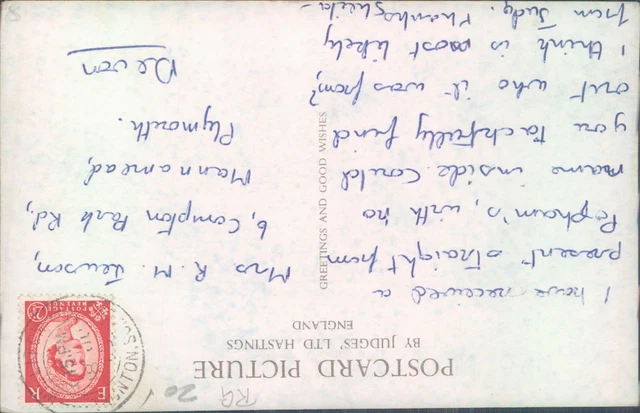 POSTCARD PICTURE
BY JUDGES' LTD HASTINGS
ENGLAND
GREETINGS AND GOOD WISHES
I have received a
present straight from
Popham's, with no
name inside. Could
you tactfully find
out who it was from?
I think is most likely
from Judy.
Mrs R. M. Jewson,
6, Compton Park Rd,
Mannamead,
Plymouth.
Devon
E R
POSTAGE
REVENUE
2½
RG
20